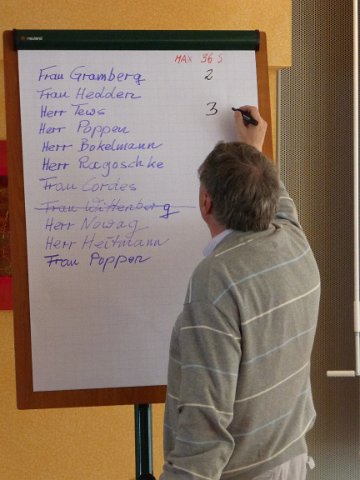 nauland
MAX 36 S
Frau Gramberg 2
Frau Hedden
Herr Tews 3
Herr Poppen
Herr Bokelmann
Herr Ragoschke
Frau Cordes
Frau Wittenberg
Herr Nowag
Herr Heitmann
Frau Poppen